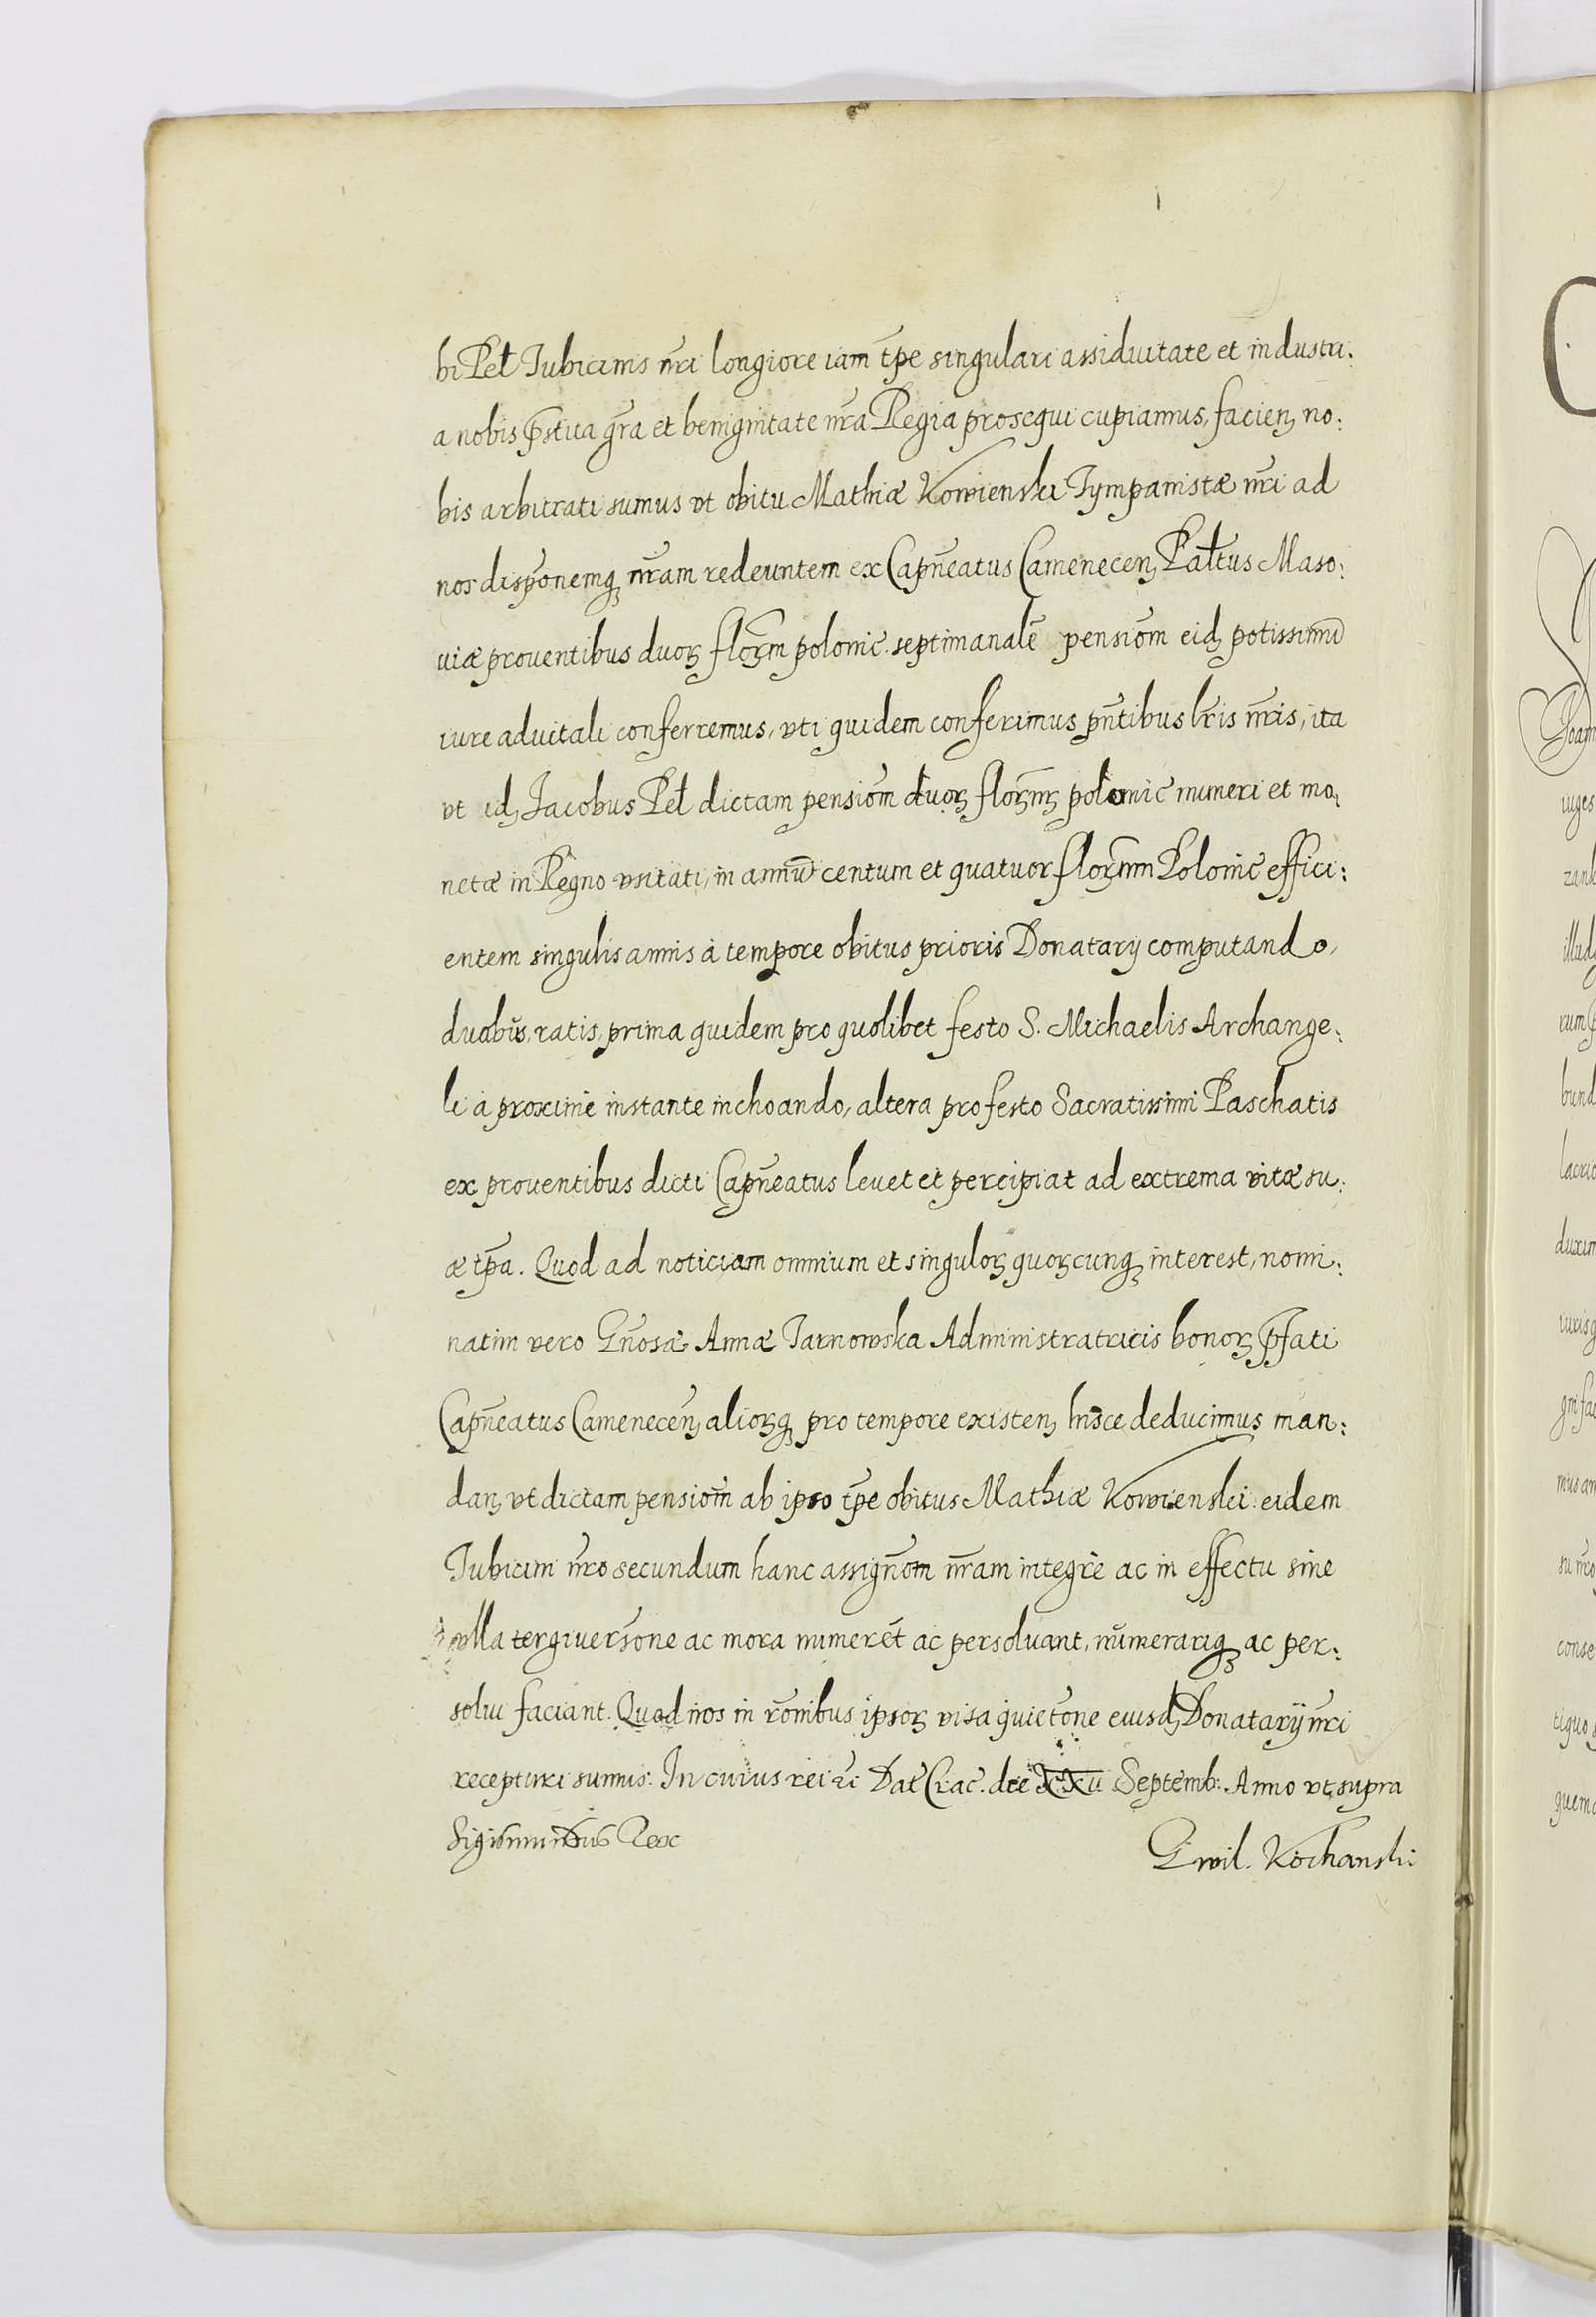 bi Peł Tubicinis nr̃i longiore iam tp̃e singulari assiduitate et industri:
a nobis p̃stita gr̃a et benignitate nr̃a Regia prosequi cupiamus, facienꝫ no:
bis arbitrati sumus vt obitu Mathiæ Kowienski Tympanistæ nr̃i ad
nos disp̃onemqꝫ nr̃am redeuntem ex Capñeatus Camenecenꝫ Pałtus Maso:
uiæ prouentibus duoꝝ floꝝm polonic̃. septimanalẽ pensiom̃ eidꝫ potissimũ
iure aduitali conferremus, vti quidem conferimus pñtibus lr̃is nr̃is, ita
vt idꝫ Jacobus Peł dictam pensiom̃ duoꝝ floꝝm polonic̃ numeri et mo:
netæ in Regno vsitati, in annũ centum et quatuor floꝝm Polonic̃ effici:
entem singulis annis à tempore obitus prioris Donatarij computando,
duobus, ratis, prima quidem pro quolibet festo S. Michaelis Archange:
li à proximè instante inchoando, altera pro festo Sacratissimi Paschatis
ex prouentibus dicti Capñeatus leuet et percipiat ad extrema vitæ su:
æ tp̃a. Quod ad noticiam omnium et singuloꝝ quoꝝcunqꝫ interest, nomi:
natim vero Gñosæ Annæ Tarnowska Administratricis bonoꝝ p̃fati
Capñeatus Camenecen̄ꝫ alioꝝqꝫ pro tempore existenꝫ hisce deducimus man:
danꝫ vt dictam pensiom̃ ab ipso tp̃e obitus Mathiæ Kowienski eidem
Tubicini nr̃o secundum hanc assignom̃ nr̃am integrè ac in effectu sine
vlla tergiuersone ac mora numerẽt ac persoluant, numerariqꝫ ac per:
solui faciant. Quod nos in rõnibus ipsoꝝ visa quietõne eiusdꝫ Donatarij nr̃i
recepturi sumus. In cuius rei Dat̃ Crac̃. die XXII Septemb: Anno vt supra
Sigismundus Rex
Kochanski